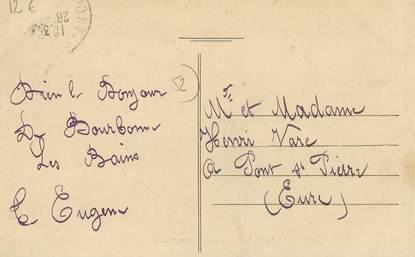 12 €
28
Bien le Bonjour
De Bourbonne
Les Bains
E Eugene
Mr et Madame
Henri Vare
a Pont St Pierre
(Eure)